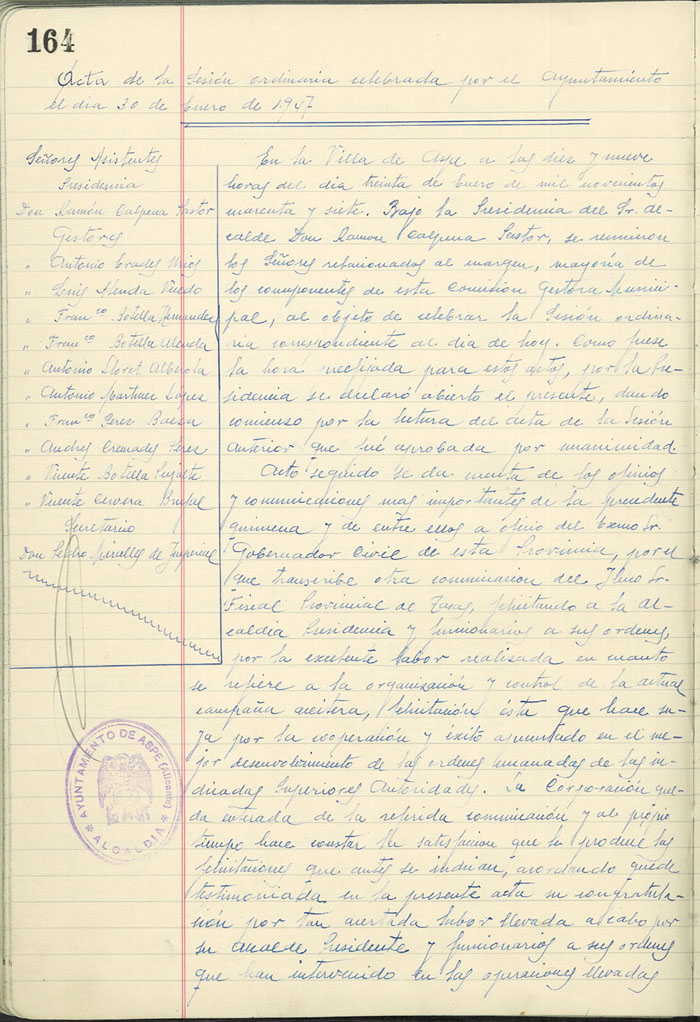 164
Acta de la Sesión ordinaria celebrada por el Ayuntamiento
el dia 30 de Enero de 1.947
Señores Asistentes
Presidencia
Don Ramón Calpena Pastor
Gestores
" Antonio Erades
" Luis Alenda
" Franco Botella Hernandez
" Franco Botella Alenda
" Antonio Lloret Alberola
" Antonio Martinez López
" Franco Perez Baesa
" Andres Cremades Perez
" Vicente Botella Pujalte
" Vicente Cervera
Secretario
Don Pedro Miralles de Imperial
En la Villa de Aspe a las diez y nueve
horas del dia treinta de Enero de mil novecientos
cuarenta y siete. Bajo la Presidencia del Sr. Al-
calde Don Ramon Calpena Pastor, se reunieron
los Señores relacionados al margen, mayoria de
los componentes de esta Comisión Gestora Munici-
pal, al objeto de celebrar la Sesión ordina-
ria correspondiente al dia de hoy. Como fuese
la hora prefijada para estos actos, por la Pre-
sidencia se declaró abierto el presente, dando
comienso por la lectura del acta de la Sesión
Anterior que fué aprobada por unanimidad.
Acto seguido se da cuenta de los oficios
y comunicaciones mas importantes de la precedente
quincena y de entre ellos a oficio del Excmo Sr.
Gobernador Civil de esta Provincia, por el
que transcribe otra comunicacion del Ilmo Sr.
Fiscal Provincial de Tasas, felicitando a la Al-
caldia Presidencia y funcionarios a sus ordenes,
por la excelente labor realizada en cuanto
se refiere a la organización y control de la actual
campaña aceitera, felicitación ésta que hace su-
ya por la cooperación y éxito apuntado en el me-
jor desenvolvimiento de las ordenes emanadas de las in-
dicadas Superiores Autoridades. La Corporación que-
da enterada de la referida comunicación y al propio
tiempo hace constar la satisfaccion que le produce las
felicitaciones que antes se indican, acordando quede
testimoniada en la presente acta su congratula-
ción por tan acertada labor llevada a cabo por
su Alcalde Presidente y funcionarios a sus ordenes
que han intervenido en las operaciones llevadas
AYUNTAMIENTO DE ASPE (Alicante)
* ALCALDIA *